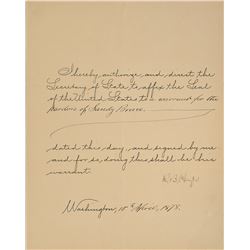 I hereby authorize and direct the
Secretary of State, to affix the Seal
of the United States to a warrant for the
pardon of
dated this day, and signed by me
and for so doing this shall be his
warrant.
R.B. Hayes
Washington, 10th April, 1878.